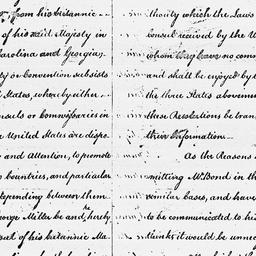 from his britannic
of his said Majesty in
Carolina and Georgia;
ty or Convention subsists
States, whereby either
onsuls or Commissaries in
United States are dispo
and Attention, to promote
Countries, and particular
depending between them
eorge Miller be and he hereby
sul of his britannic Ma
thority which the Laws
Consul received by the U
whom they have no comm
and shall be enjoyed by t
the three States abovemen
these Resolutions be tran
their Information
As the Reasons
mitting Mr. Bond in th
similar cases, and have
to be communicated to his
thinks it would be unnec